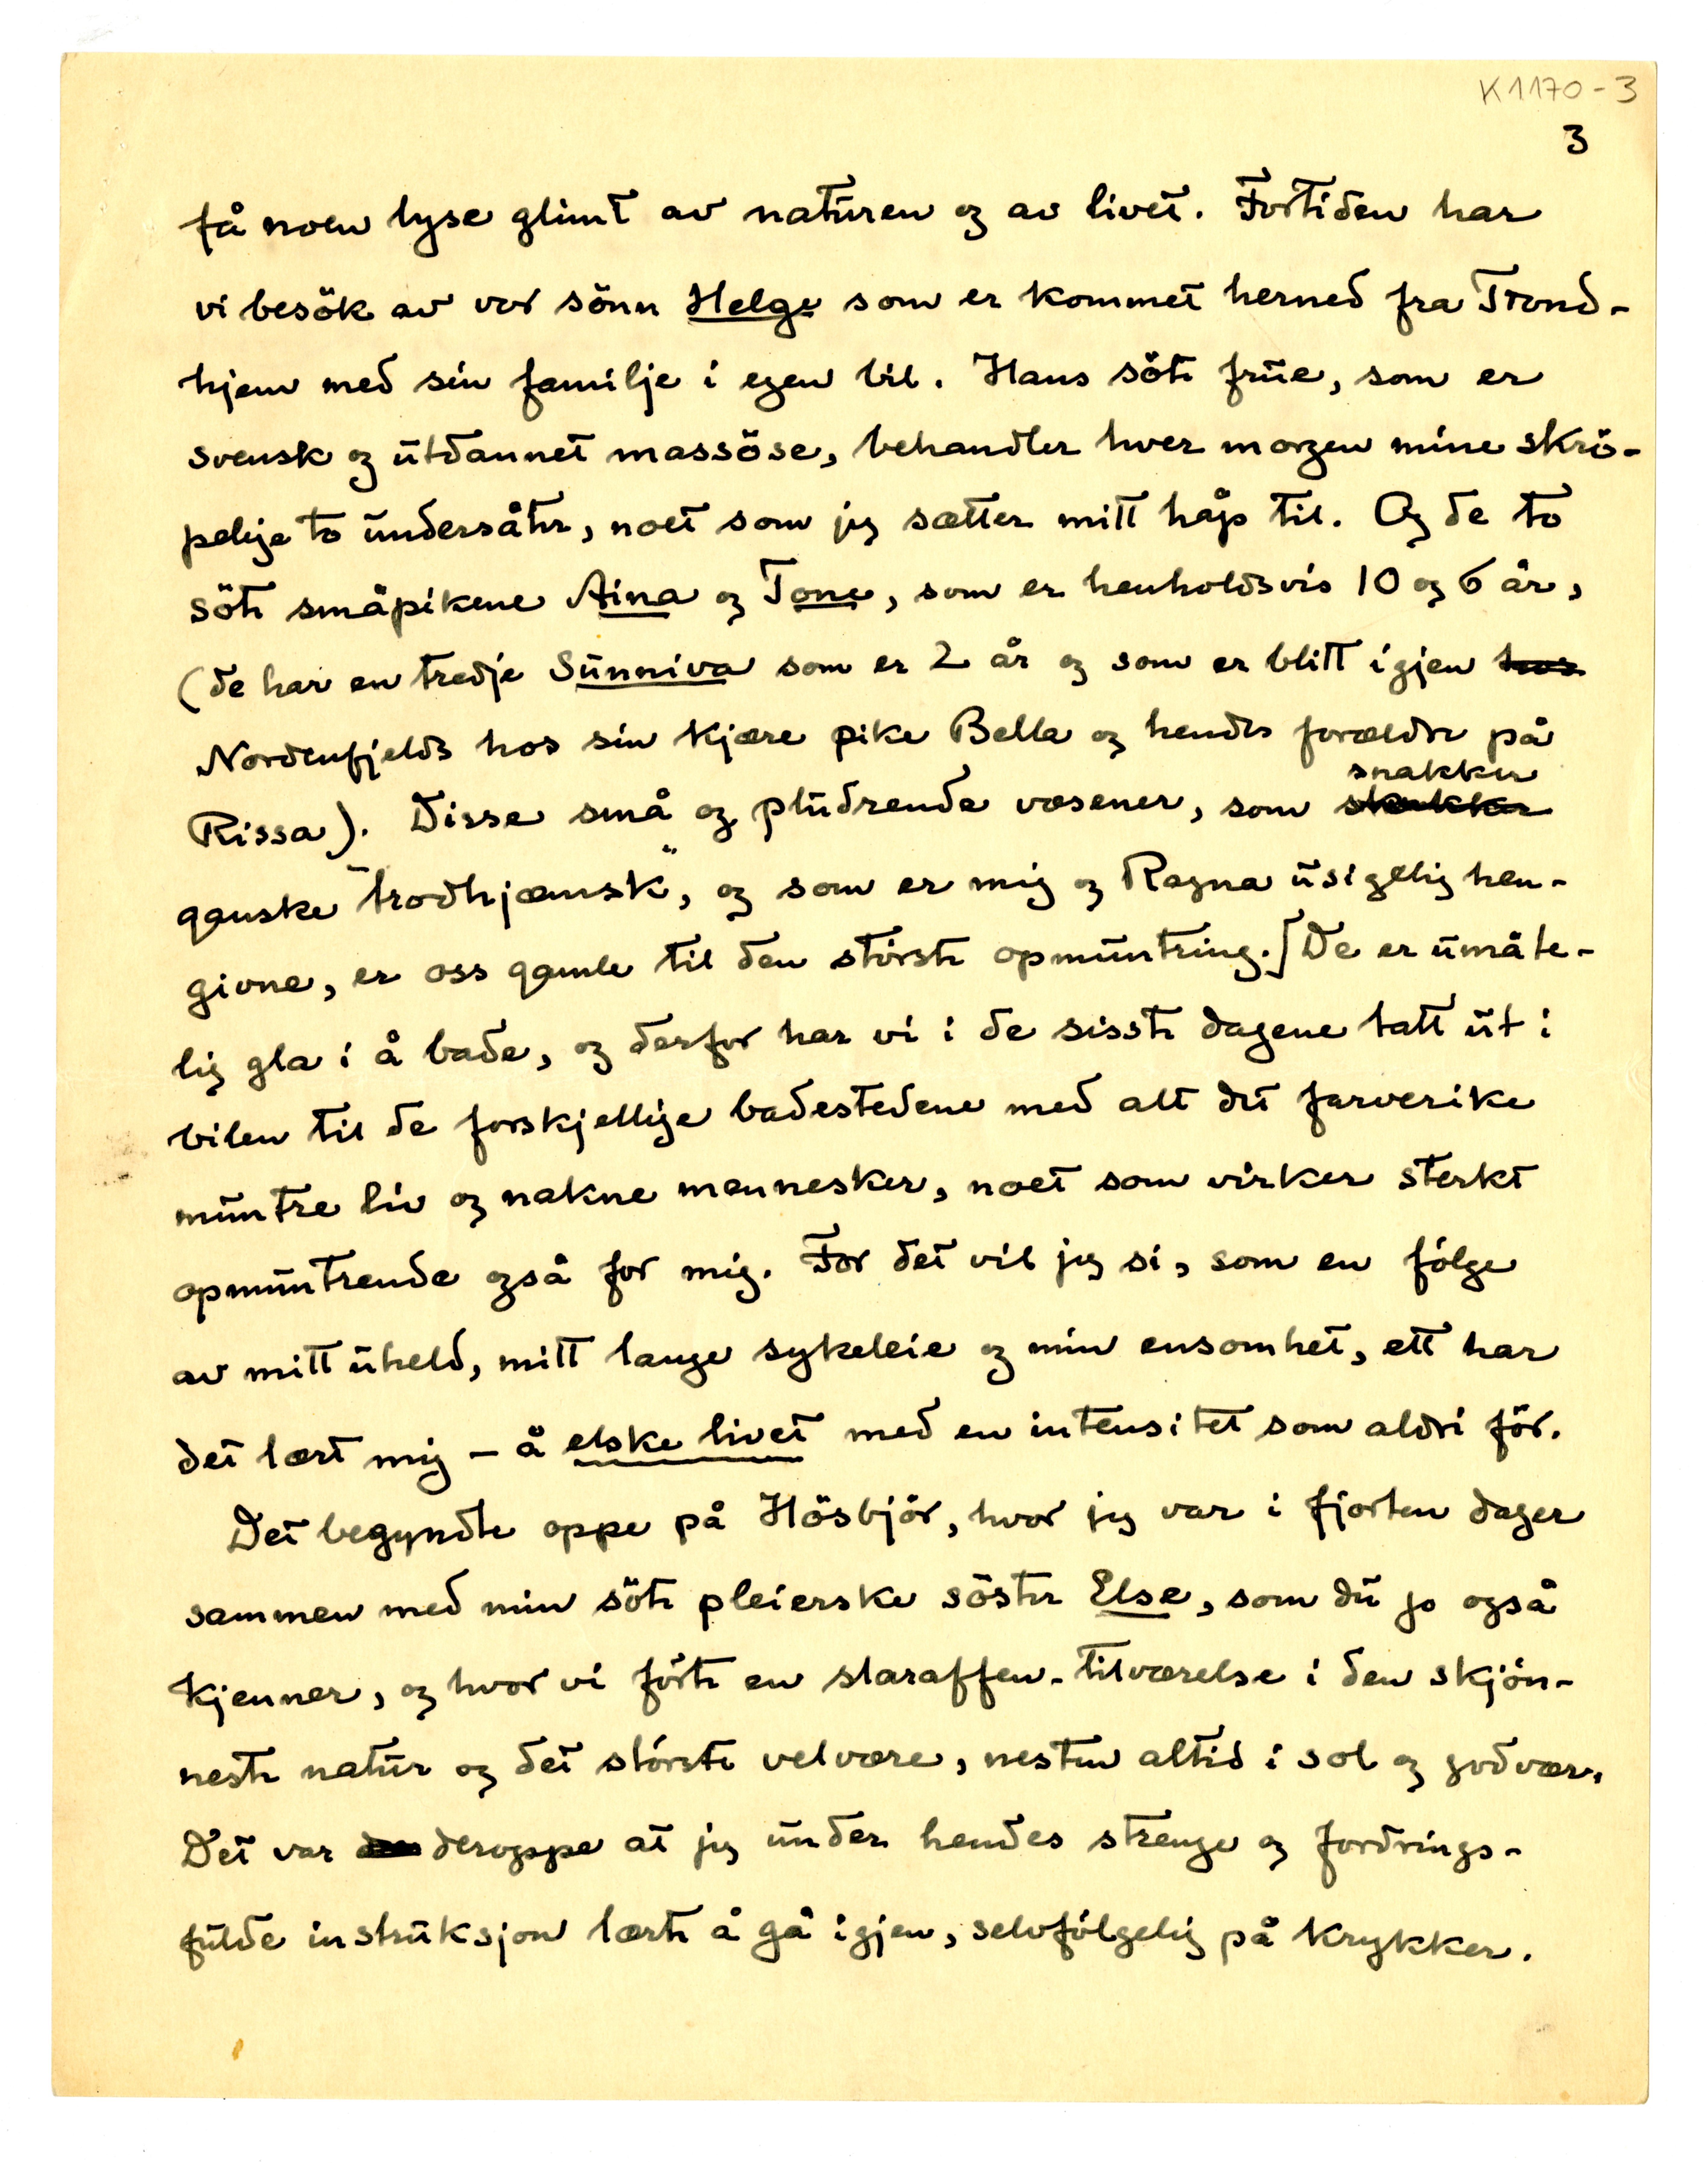 K1170-3
3
få noen lyse glimt av naturen og av livet. Fortiden har
vi besök av vor sönn Helge som er kommet herned fra Trond-
hjem med sin familje i egen bil. Hans söte frue, som er
svensk og utdannet massöse, behandler hver morgen mine skrö-
pelige to undersåtter, noet som jeg sætter mitt håp til. Og de to
söte småpikene Aina og Tone, som er henholdsvis 10 og 6 år,
(de har en tredje Sunniva som er 2 år og som er blitt igjen hos
Nordenfjelds hos sin kjære pike Bella og hendes forældre på
snakker
Rissa). Disse små og pludrende væsener, som
ganske "trodhjæmsk", og som er mig og Ragna usigelig hen-
givne, er oss gamle til den störste opmuntring.] De er umåte-
lig gla i å bade, og derfor har vi i de sisste dagene tatt ut i
bilen til de forskjellige badestedene med alt det farverike
muntre liv og nakne mennesker, noet som virker sterkt
opmuntrende også for mig. For det vil jeg si, som en fölge
av mitt uheld, mitt lange sykeleie og min ensomhet, ett har
det lært mig – å elske livet med en intensitet som aldri för.
Det begyndte oppe på Hösbjör, hvor jeg var i fjorten dager
sammen med min söte pleierske söster Else, som du jo også
kjenner, og hvor vi förte en slaraffen-tilværelse i den skjön-
neste natur og det störste velvære, nesten altid i sol og godvær.
Det var deroppe at jeg under hendes strenge og fordrings-
fulde instruksjon lærte å gå igjen, selvfölgelig på krykker.